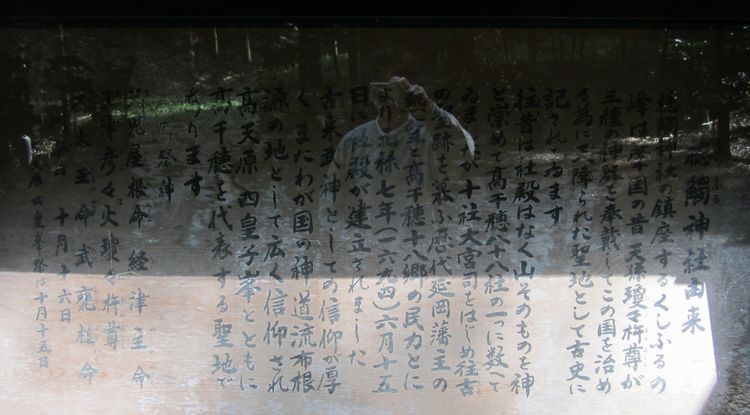 槵觸神社由来
槵觸神社の鎮座するくしふるの
峰は肇国の昔天孫瓊々杵尊が
三種の神器を奉戴してこの国を治め
る為に天降られた聖地として古史に
記されてゐます
往昔は社殿はなく山そのものを神
と崇めて高千穂八十八社の一つに数へて
ゐましたが十社大宮司をはじめ往古
の 跡を慕ふ歴代延岡藩主の
と高千穂十八郷の民力とに
より元禄七年(一六九四)六月十五
日に社殿が建立されました
古来武神としての信仰が厚
くまたわが国の神道流布根
源の地として広く信仰され
高天原四皇子峯とともに
高千穂を代表する聖地で
あります
祭神
天児屋根命 経津主命
天津彦々火瓊々杵尊
太玉命 武甕槌命
十月十六日
原四皇子峯祭は十月十五日